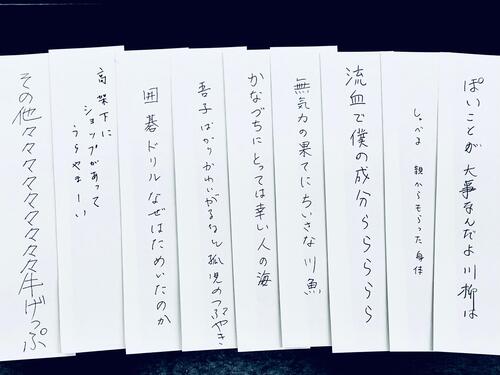 ぽいことが大事なんだよ川柳は
しゃべるよ 親からもらった身体
流血で僕の成分らららららら
無気力の果てにちいさな川魚
かなづちにとっては辛い人の海
吾子ばかりかわいがるなと孤児のつぶやき
囲碁ドリルなぜはためいたのか
高架下に
ショップがあって
うらやまーしい
その他々々々々々々々々々牛げっぷ